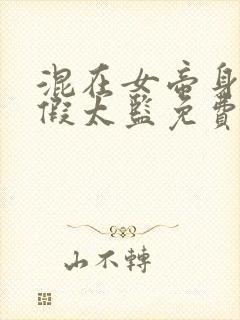 混在女帝身
假太監免費
山不轉